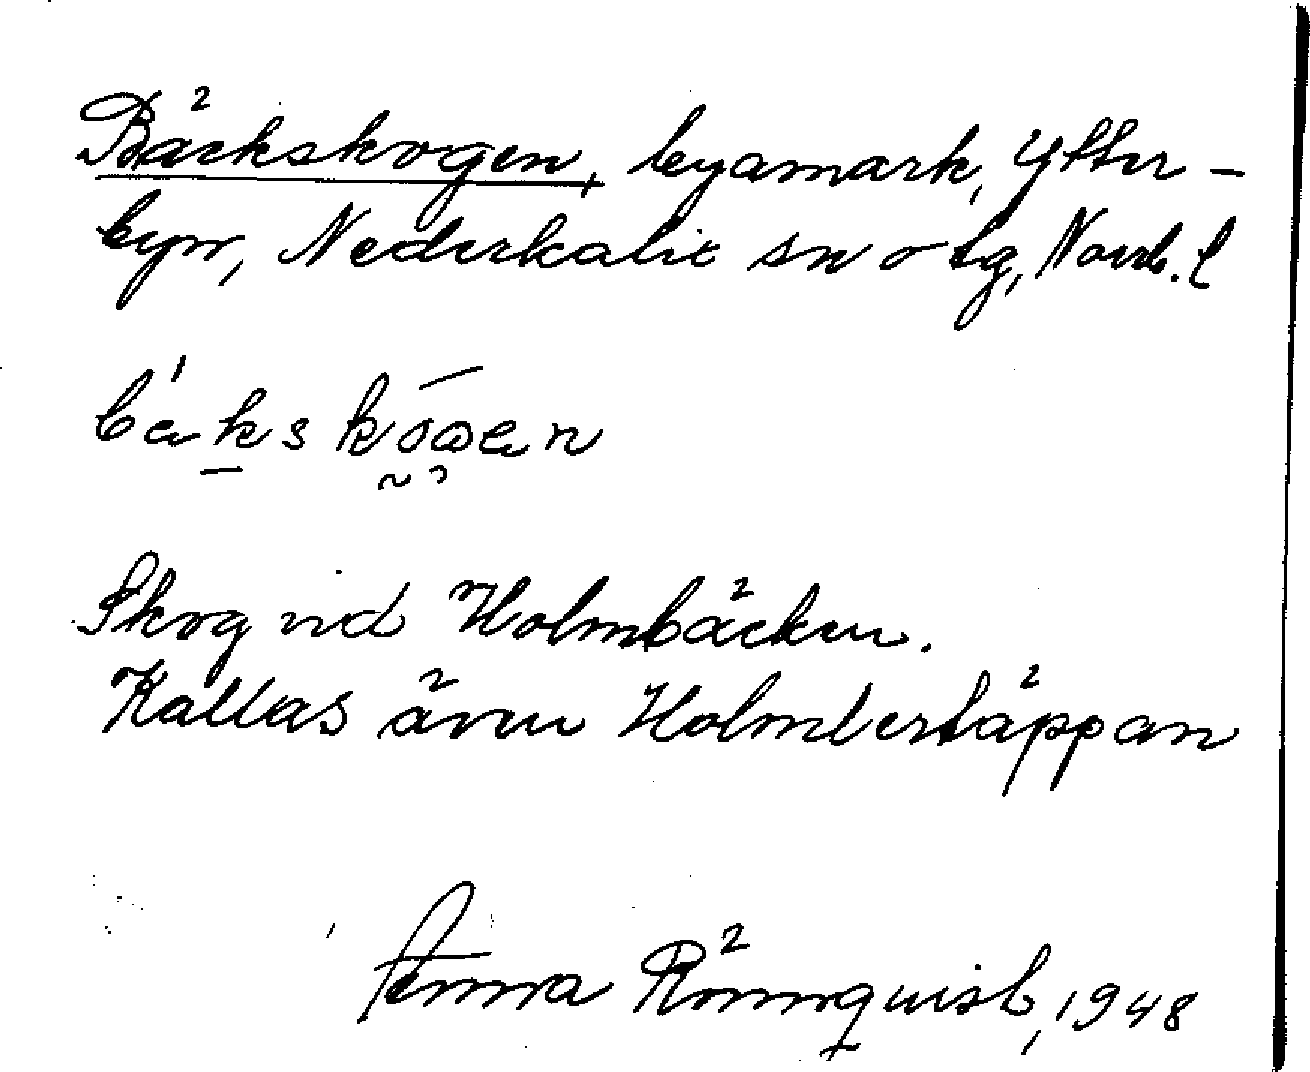 Bäckskogen, byamark, Ytter-
byn, Nederkalix sn o tg, Norrb. l
Skog vid Holmbäcken.
Kallas även Holmtertäppan
Anna Rönnquist, 1948